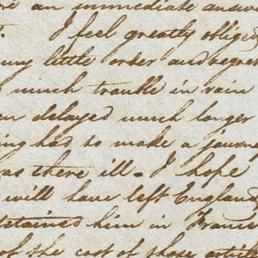 an immediate answer
I feel greatly obliged
my little order and regret
much trouble in vain
delayed much longer
had to make a journey
there ill - I hope
will have left England
detained him in France
of the cost of those articles